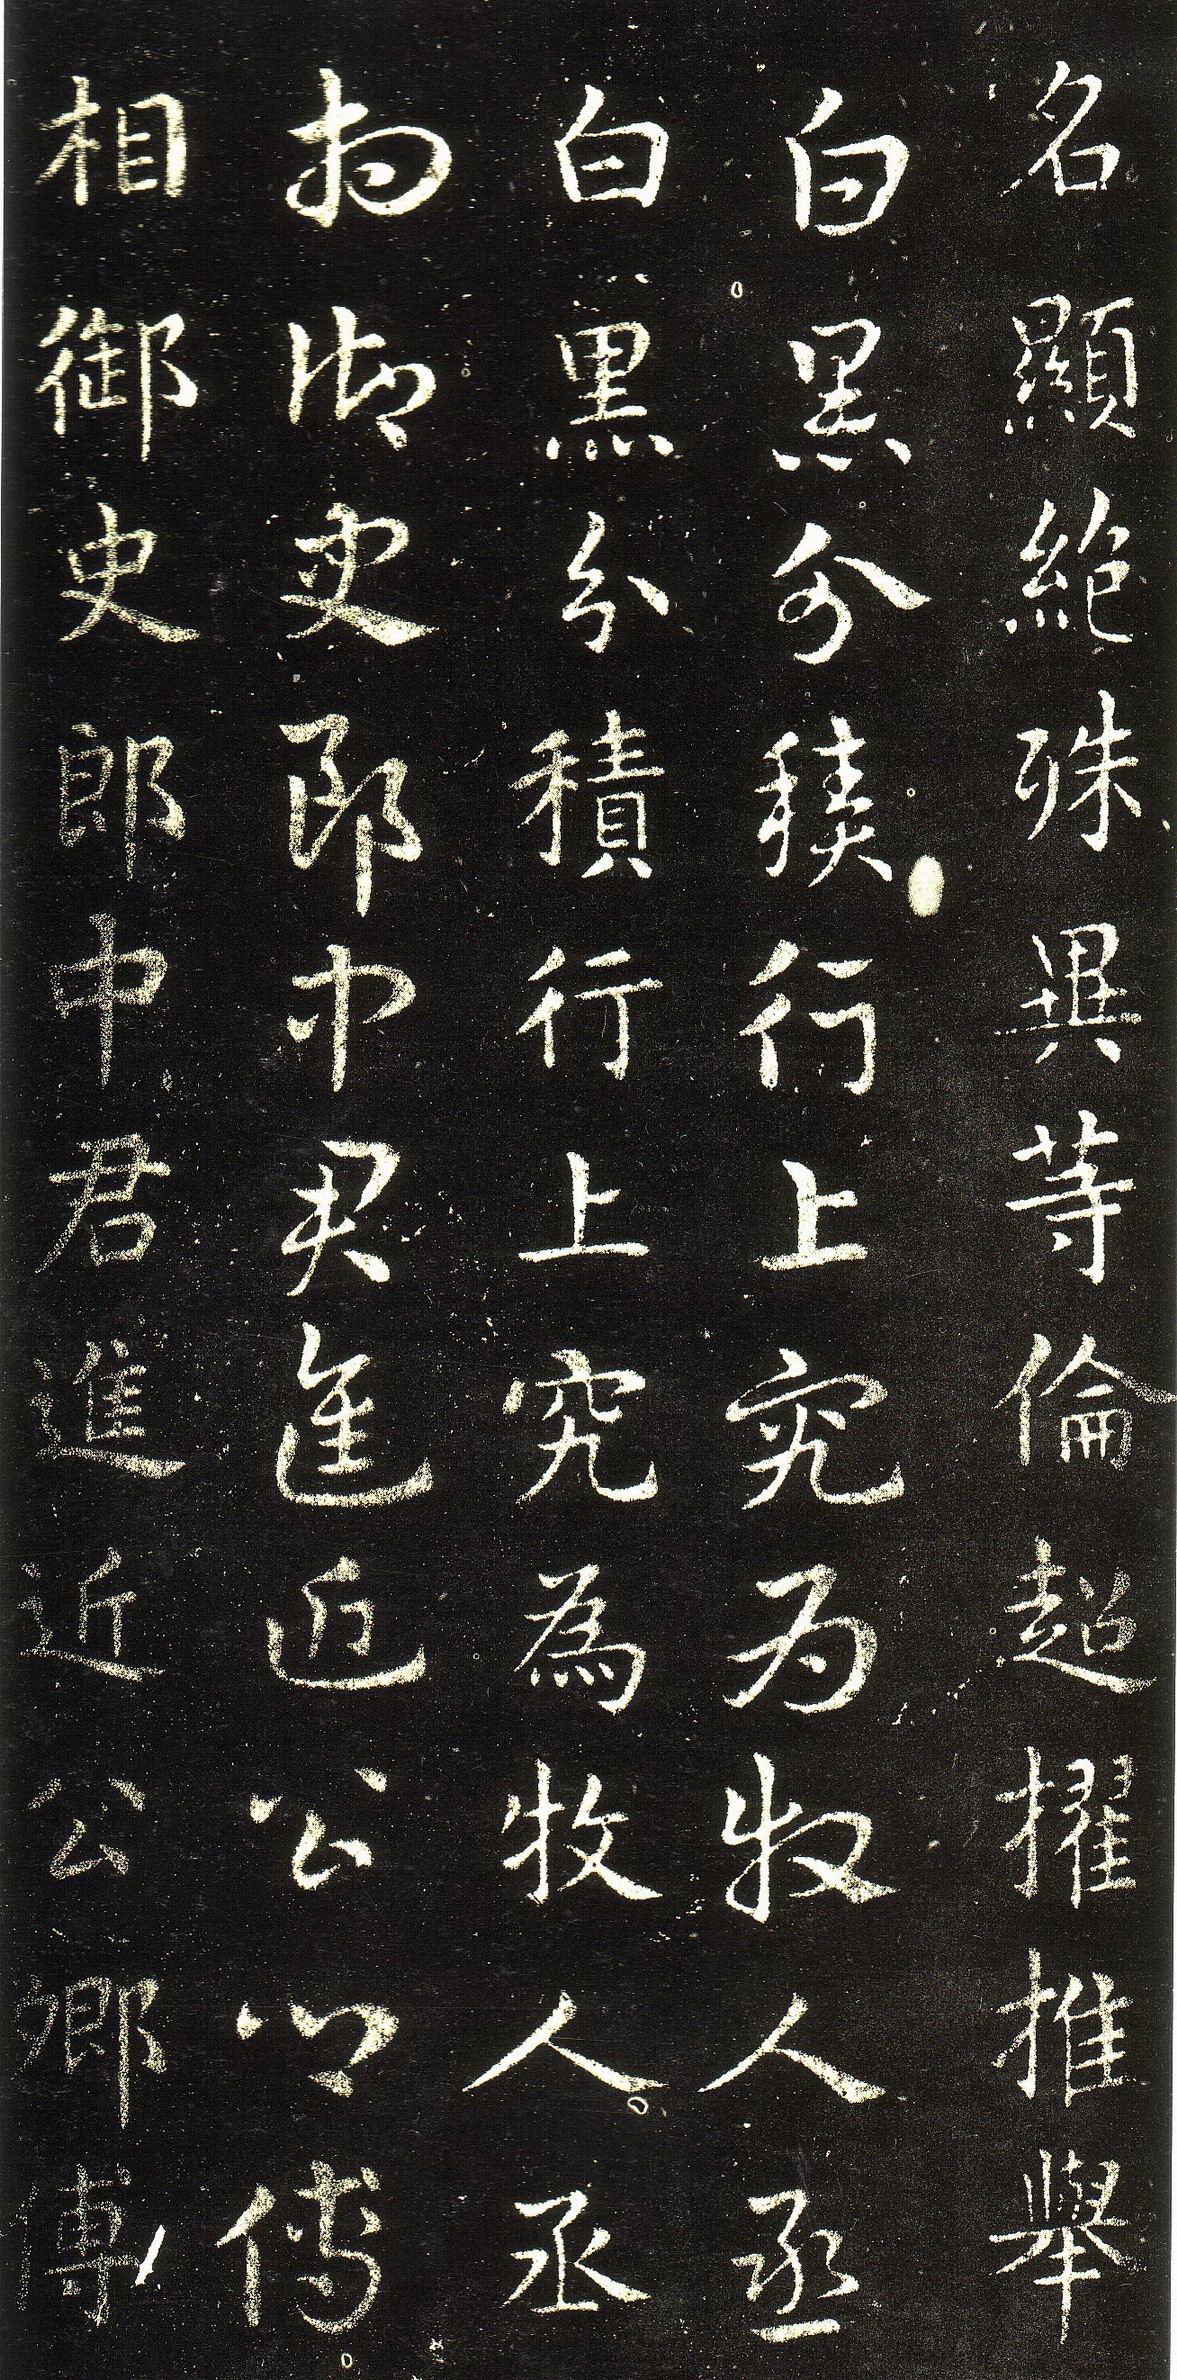 名顯絕殊異等倫超擢推舉
白黑分積行上究為牧人丞
白黑分積行上究為牧人丞
相御史郎中君進近公卿傅
相御史郎中君進近公卿傅